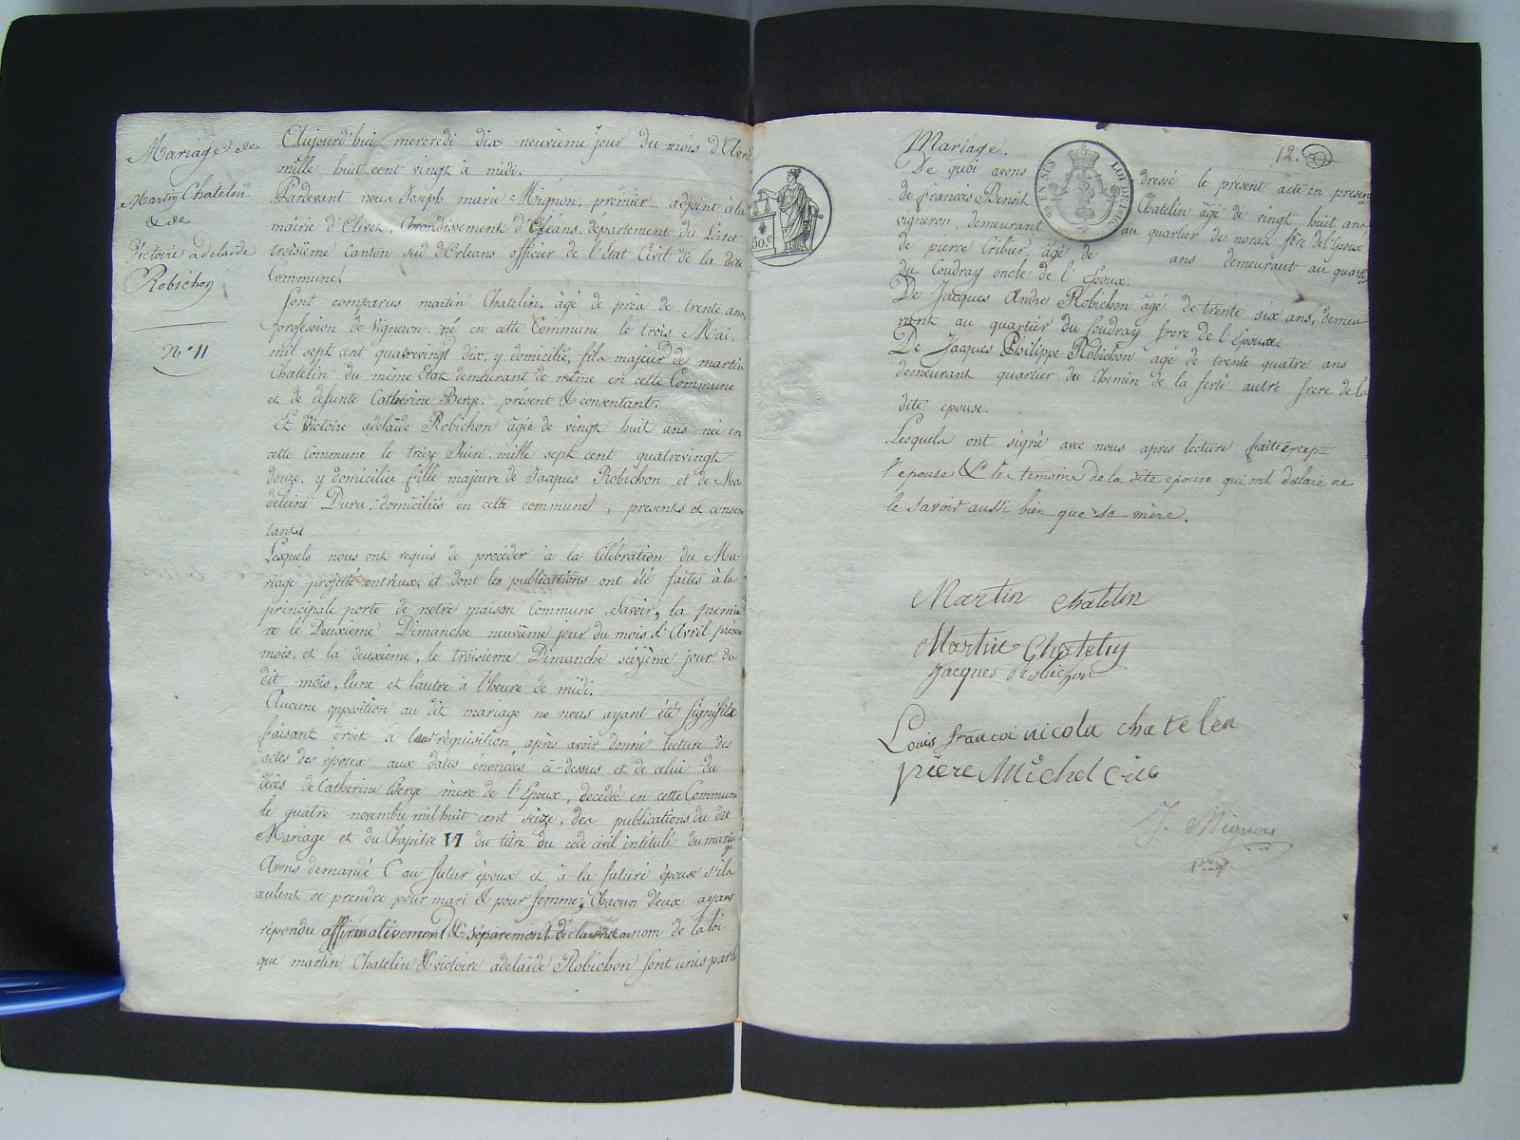 Mariage de
Martin Chatelin
& de
Victoire adelaide
Robichon
N.° 11
Aujourd'hui mercredi dix neuvième jour du mois d'Avril
mille huit cent vingt à midi.
Pardevant nous Joseph marie Mignon, prémier adjoint à la
mairie d'Olivet, Arrondissement d'Orléans, département du Loiret
troisième canton sud d'Orleans officier de l'Etat Civil de la dite
Commune.
Sont comparus martin Chatelin, âgé de près de trente ans,
profession de Vigneron, né en cette Commune le trois Mai
mil sept cent quatrevingt dix, y domicilié, fils majeur de martin
Chatelin du même Etat demeurant de même en cette Commune
et de défunte Catherine Berge. présent & consentant.
Et Victoire adelaïde Robichon âgée de vingt huit ans née en
cette Commune le treize Juin mille sept cent quatrevingt
douze, y domiciliée fille majeure de Jacques Robichon et de Ma
deleine Dura, domiciliés en cette commune, présents et consen
tants
Lesquels nous ont requis de procéder à la Célébration du Ma
riage projetté entr'eux, et dont les publications ont été faites à la
principale porte de notre maison Commune, Savoir, la premiè
re le Deuxième Dimanche neuvième jour du mois d'Avril présent
mois, et la deuxième, le troisième Dimanche seizième jour du
dit mois, l'une et l'autre à l'heure de midi.
Aucune opposition au dit mariage ne nous ayant été signifiée
faisant droit à leur réquisition, après avoir donné lecture des
actes des époux aux dates énoncées ci-dessus et de celui du
décès de Catherine Berge mère de l'Epoux, decédée en cette Commune
le quatre novembre mil huit cent seize, des publications du dit
Mariage et du Chapitre VI du titre du code civil intitulé du mariage
Avons demandé au futur époux et à la future épouse s'ils
veulent se prendre pour mari & pour femme, Chacun d'eux ayant
répondu affirmativement & séparement déclarons au nom de la loi
que martin Chatelin & victoire adelaïde Robichon sont unis par le
Mariage.
12.
De quoi avons dressé le présent acte en présence
de françois Benoit Chatelin âgé de vingt huit ans
vigneron, demeurant au quartier de noras frère de l'époux
de pierre Cribier, âgé de ans demeurant au quartier
du Coudray oncle de l'Epoux.
De Jacques André Robichon âgé de trente six ans, demeu
rant au quartier du Coudray frere de l'Epouse
De Jacques Philippe Robichon âgé de trente quatre ans
demeurant quartier du Chemin de la ferté autre frere de la
dite epouse.
Lesquels ont signé avec nous après lecture faite excep
l'epouse & les temoins de la dite epouse qui ont declaré ne
le savoir aussi bien que sa mère.
Martin Chatelin
Martin Chatelin
Jacques Robichon
Louis francoi nicola chatelen
J. Mignon